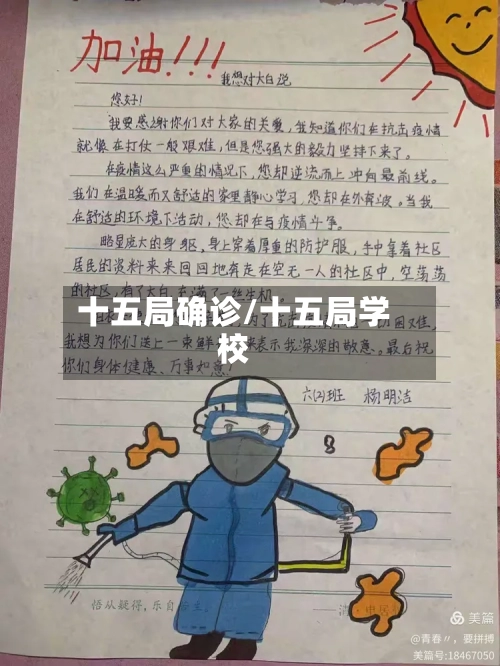 加油!!!
我想对大白说
您好!
我要感谢你们对大家的关爱,我知道你们在抗击疫情
就像在打仗一般艰难,但是您强大的毅力坚持下来了。
在疫情这么严重的情况下,您却逆流而上冲向最前线。
我们在温暖而又舒适的家里静心学习,您却在外奔波。当我
在舒适的环境下活动,您却在与疫情斗争。
略显庞大的身躯,身上穿着厚重的防护服,手中拿着社区
居民的资料来来回回地奔走在空无一人的社区中,空荡荡
的社区,有了大白
十五局确诊/十五局学
校
困难,
我想为你们送上一束鲜
表示我深深的敬意。最后祝
你们身体健康、万事如意!
六(2)班 杨明洁
悟从疑得,乐自
美篇
@青春〃,要拼搏
美篇号:18467050